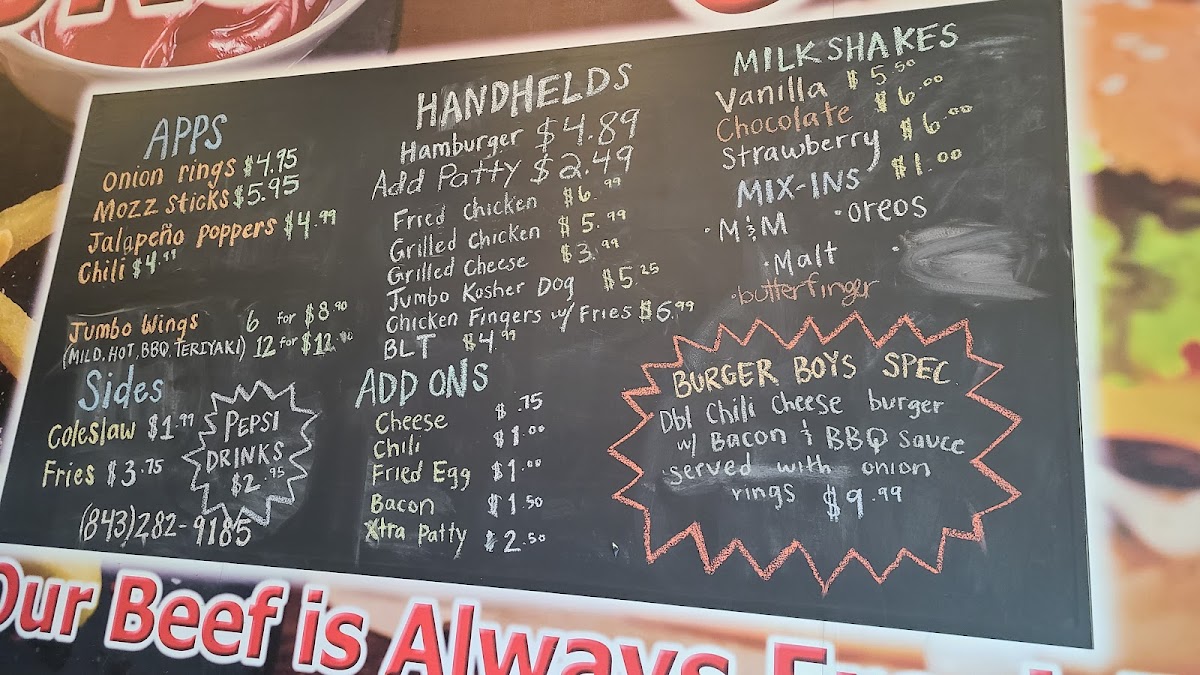 APPS
Onion rings $4.95
Mozz sticks $5.95
Jalapeño poppers $4.99
Chili $4.99
Jumbo Wings 6 for $8.90
(MILD, HOT, BBQ, TERIYAKI) 12 for $12.90
Sides
Coleslaw $1.99
Fries $3.75
PEPSI
DRINKS
$2.95
(843)282-9185
HANDHELDS
Hamburger $4.89
Add Patty $2.49
Fried Chicken $6.99
Grilled Chicken $5.99
Grilled Cheese $3.99
Jumbo Kosher Dog $5.25
Chicken Fingers w/ Fries $6.99
BLT $4.99
ADD ONS
Cheese $.75
Chili $1.00
Fried Egg $1.00
Bacon $1.50
Xtra Patty $2.50
MILKSHAKES
Vanilla $5.50
Chocolate $6.00
Strawberry $6.00
MIX-INS $1.00
· M&M · Oreos
· Malt ·
· butterfinger
BURGER BOYS SPEC.
Dbl Chili Cheese burger
w/ Bacon & BBQ sauce
served with onion
rings $9.99
Our Beef is Always